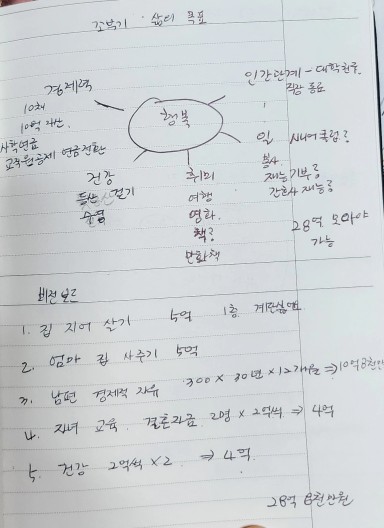 꼬부기 삶의 목표
경제력
10채
10억 자산
사학연금
교직원공제 연금전환
행복
인간관계 - 대학친구
직장 동료
일 시니어클럽
봉사
재능기부
간호사 재능
건강
등산 걷기
수영
취미
여행
영화
책
만화책
28억 모아야
가능
비전보드
1. 집 지어 살기 5억 1층 계단싫어요
2. 엄마 집 사주기 5억
3. 남편 경제적 자유 300 × 30년 × 12개월 ⇒ 10억 8천만
4. 자녀 교육. 결혼자금 2명 × 2억씩 ⇒ 4억
5. 건강 2억씩 × 2 ⇒ 4억.
28억 8천만원